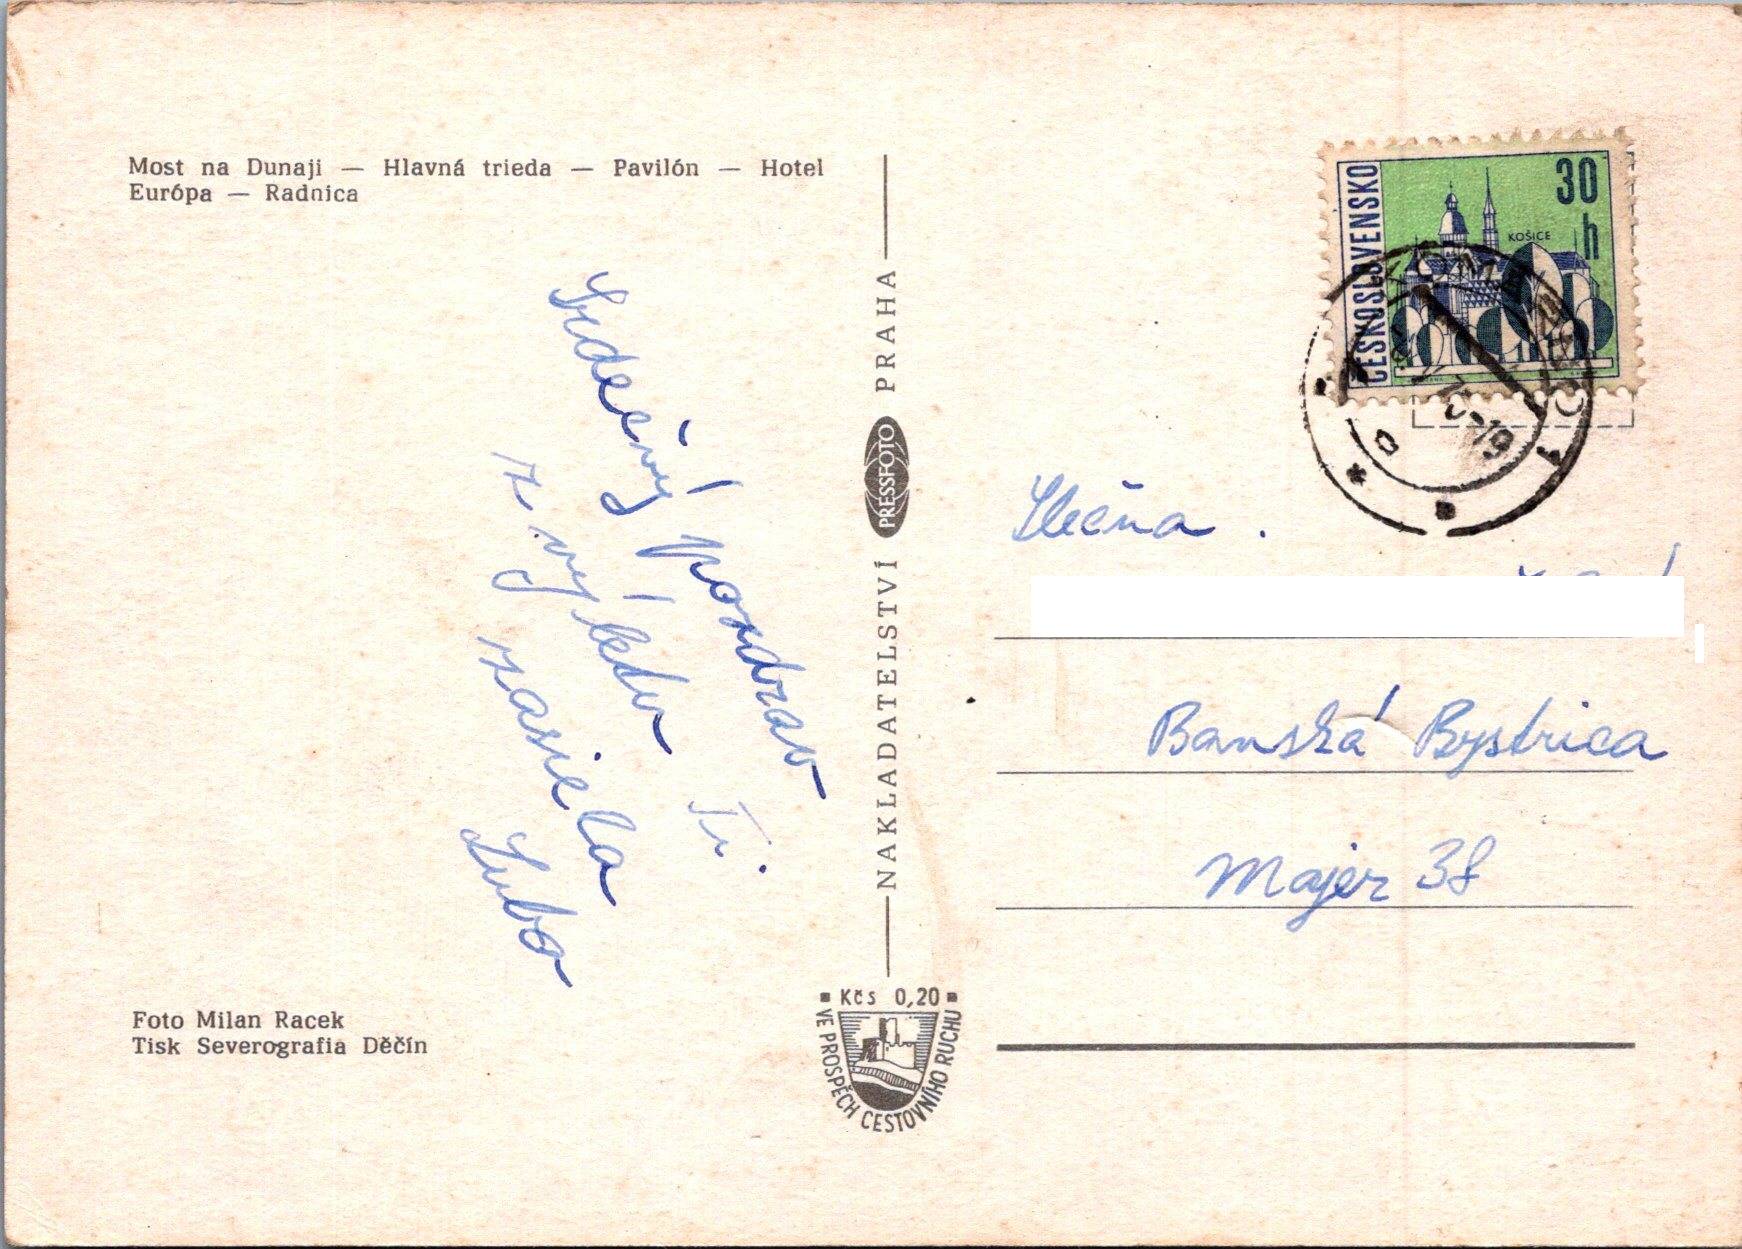 Most na Dunaji — Hlavná trieda — Pavilón — Hotel
Európa — Radnica
Srdečný pozdrav
z výletu Ti
zasiela
Ľubo
Foto Milan Racek
Tisk Severografia Děčín
NAKLADATELSTVÍ PRESSFOTO PRAHA
Kčs 0,20
VE PROSPĚCH CESTOVNÍHO RUCHU
ČESKOSLOVENSKO
30
h
KOŠICE
KOMÁRNO 1
Slečna
Banská Bystrica
Majer 38